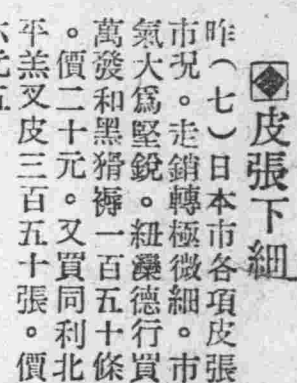 皮張下細
昨（七）日本市各項皮張
市況。走銷轉極微細。市
氣大爲堅銳。紐灤德行買
萬發和黑猾褥一百五十條
。價二十元。又買同利北
平羔叉皮三百五十張。價